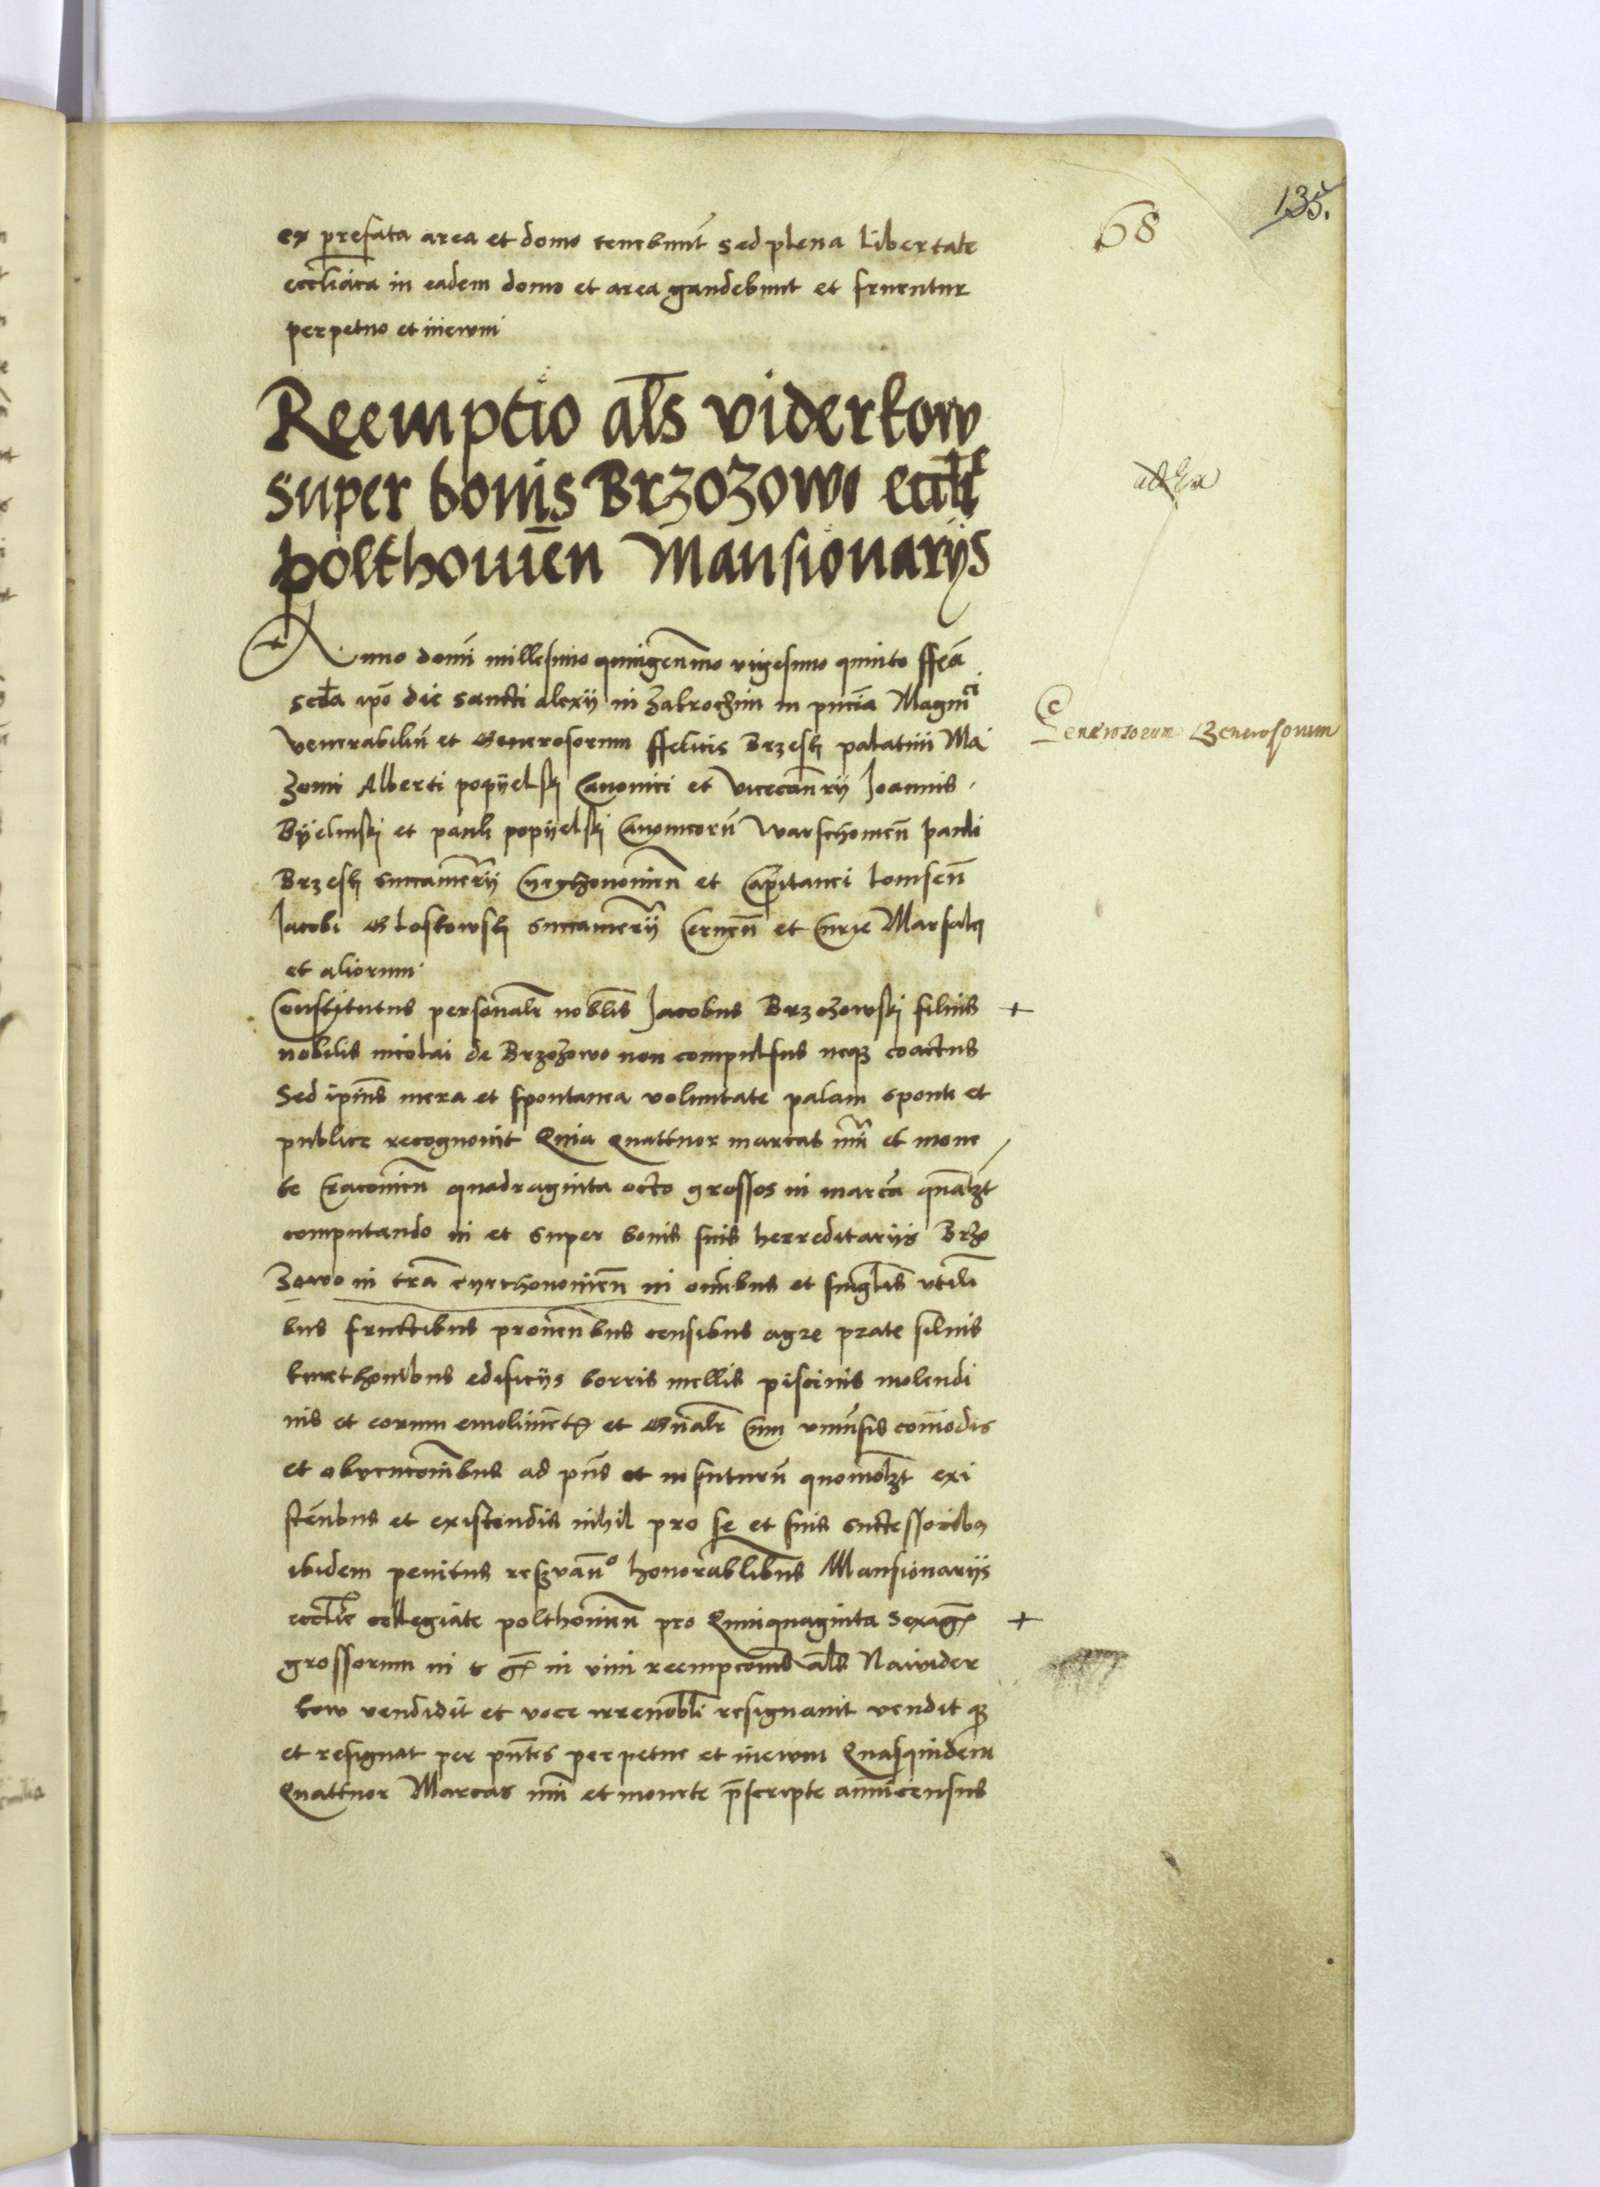 68
135.
ex prefata area et domo tenebunt̄ sed plena libertate
eccl̄iatca in eadem domo et area gaudebunt et fruentur
perpetuo et in ewm
Reemptio al̄s viderkow
super bonis Brzozowo eccl̄ie
polthouien̄ Mansionarijs
Anno domī millesimo quingentēmo vigesimo quinto ffeā
scd̄a ip̄o die sancti alexij in Zakroczim in pn̄cia Magn̄ci
venerabiliū et Generosorum ffelicis Brzeskj palatini Ma
Generosorum
zouie Alberti popyelskj Canonici et vicecan̄rij Joannis
Byelinskj et pauli popyelskj Canonicorū Warschouien̄ pauli
Brzeskj succamer̄ij Cyechonouien̄ et Capitanei lomsen̄
Jacobi Gloskowskj succamerij Cernen̄ et Curie Marsalcj
et aliorum
Constitutus personalr̄ nobl̄is Jacobus Brzozowskj filius
nobilis nicolai de Brzozowo non compulsus neqꝫ coactus
Sed ipius̄ mera et spontanea voluntate palam sponte et
publice recognouit Quia Quattuor marcas nu͞i et mone
te Racouien̄ quadraginta octo grossos in marcā qual̄zt
computando in et super bonis suis herreditarijs Brzo
zowo in tr̄a cyechonouien̄ in oīnibus et singl̄is vtili
bus fructibus prouentībus censibus agꝝ prate siluis
kmethonibus edificijs borris mellis piscinis molendi
nis et eorum emolimentꝭ et Gn̄alr̄ cum vniuersis com̄odis
et obuencom̄ibus ad pn̄s et in futurū quomol̄zt exi
stētibus et existendis nihil pro se et suis successoribꝫ
ibidem penitus reseruan̄º honorablibus Mansionarijs
eccl̄ie collegiate polthouien̄ pro Quinquaginta sexagꝭ
grossorum in s gꝭ in vim reempcom̄s al̄s Nawider
kow vendidit et voce irreuobl̄i resignauit vendit qꝫ
et resignat per pn̄tes perpetue et in ewm Quasquidem
Quattuor Marcas nu͞i et monete p̄scripte annui census